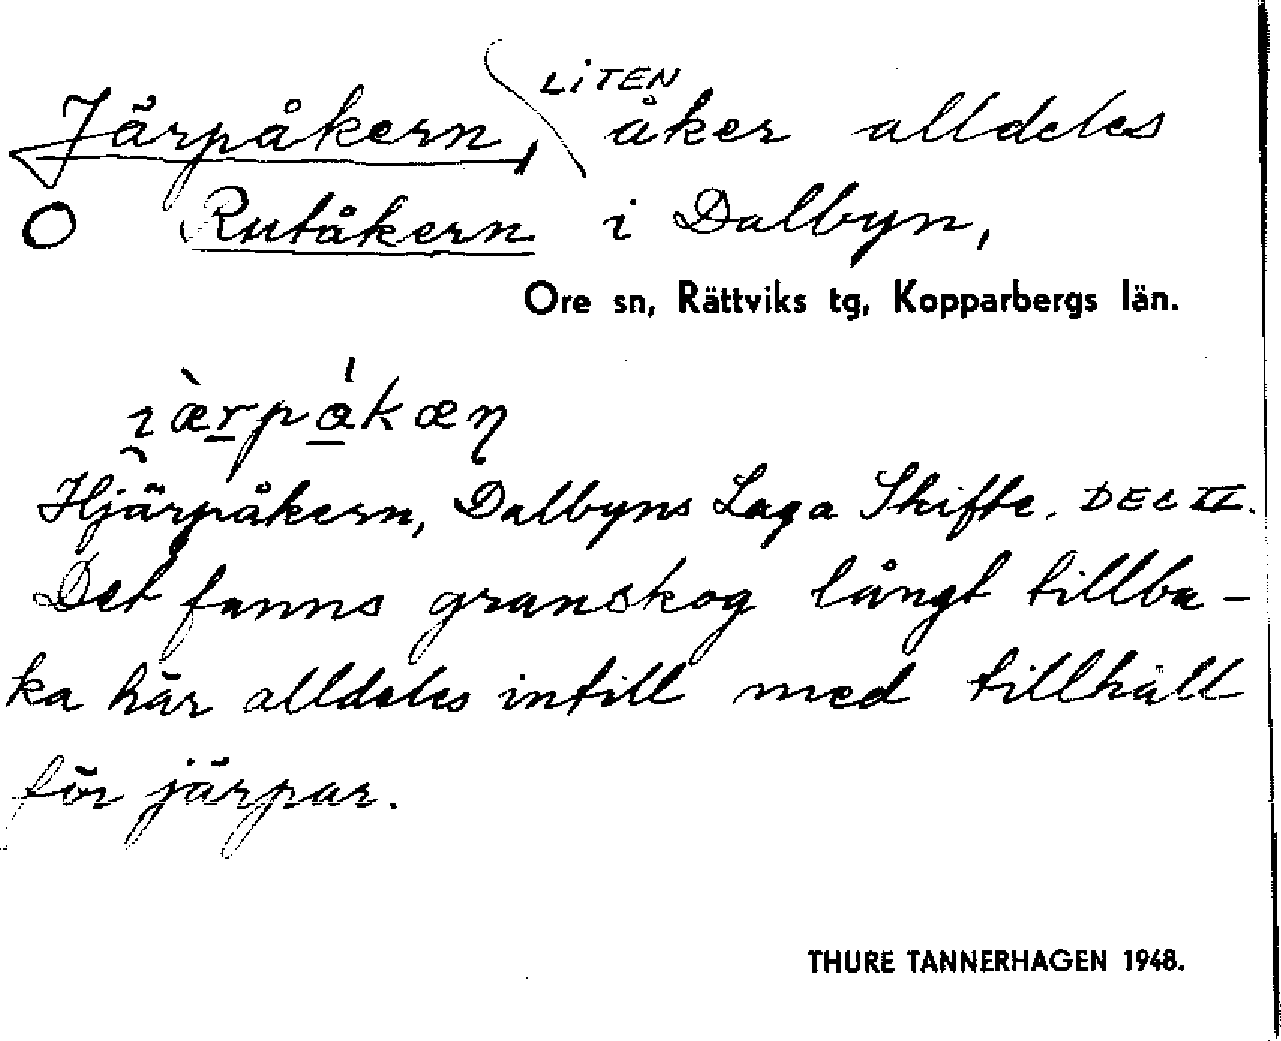 Järpåkern, LITEN åker alldeles
O Rutåkern i Dalbyn,
Ore sn, Rättviks tg, Kopparbergs län.
Hjärpåkern, Dalbyns Laga Skifte.
Det fanns granskog långt tillba-
ka här alldeles intill med tillhåll
för järpar.
THURE TANNERHAGEN 1948.